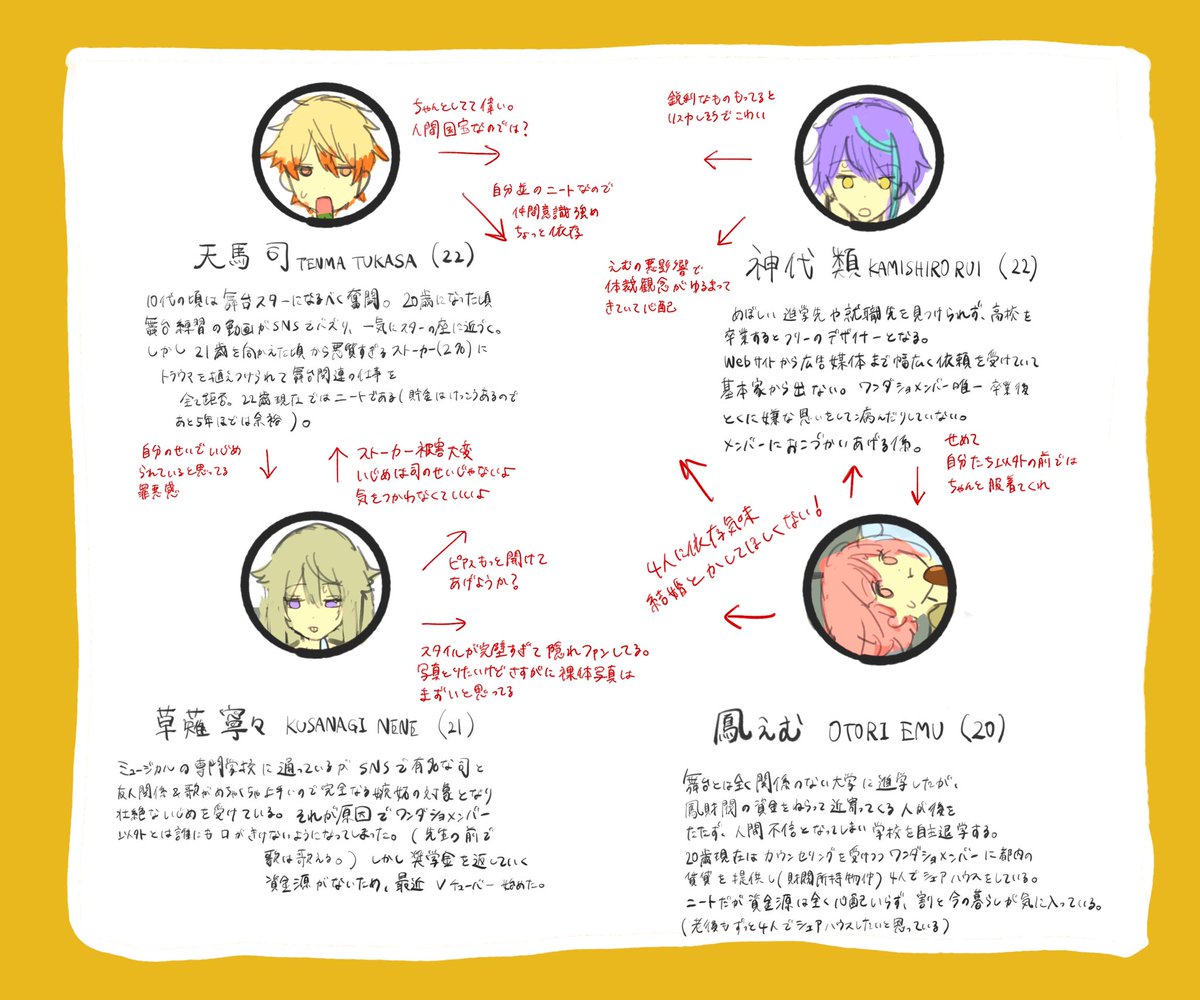 ちゃんとしてて偉い。
人間国宝なのでは？
鋭利なものもってると
リスカしそうでこわい
自分並のニートなので
仲間意識強め
ちょっと依存
えむの悪影響で
体裁観念がゆるまって
きていて心配
天馬 司 TENMA TUKASA (22)
10代の頃は舞台スターになるべく奮闘。20歳になった頃
舞台練習の動画がSNSでバズり、一気にスターの座に近づく。
しかし21歳を向かえた頃から悪質すぎるストーカー(2名)に
トラウマを植えつけられて舞台関連の仕事を
全て拒否。22歳現在ではニートである(貯金はけっこうあるので
あと5年ほどは余裕)。
神代 類 KAMISHIRO RUI (22)
めぼしい進学先や就職先を見つけられず、高校を
卒業するとフリーのデザイナーとなる。
Webサイトから広告媒体まで幅広く依頼を受けていて
基本家から出ない。ワンダショメンバー唯一卒業後
とくに嫌な思いをして病んだりしていない。
メンバーにおこづかいあげる係。
自分のせいでいじめ
られていると思ってる
罪悪感
ストーカー被害大変
いじめは司のせいじゃないよ
気をつかわなくていいよ
せめて
自分たち以外の前では
ちゃんと服着てくれ
ピアスもっと開けて
あげようか？
4人に依存気味
結婚とかしてほしくない！
スタイルが完璧すぎて隠れファンしてる。
写真とりたいけどさすがに裸体写真は
まずいと思ってる
草薙 寧々 KUSANAGI NENE (21)
ミュージカルの専門学校に通っているがSNSで有名な司と
友人関係&歌がめちゃくちゃ上手いので完全なる嫉妬の対象となり
壮絶ないじめを受けている。それが原因でワンダショメンバー
以外とは誰にも口がきけないようになってしまった。(先生の前で
歌は歌える。)しかし奨学金を返していく
資金源がないため、最近Vチューバー始めた。
鳳えむ OTORI EMU (20)
舞台とは全く関係のない大学に進学したが、
鳳財閥の資金をねらって近寄ってくる人が後を
たたず、人間不信となってしまい学校を自主退学する。
20歳現在はカウンセリングを受けつつワンダショメンバーに都内の
賃貸を提供し(財閥所持物件)4人でシェアハウスをしている。
ニートだが資金源は全く心配いらず、割と今の暮らしが気に入っている。
(老後もずっと4人でシェアハウスしたいと思っている)